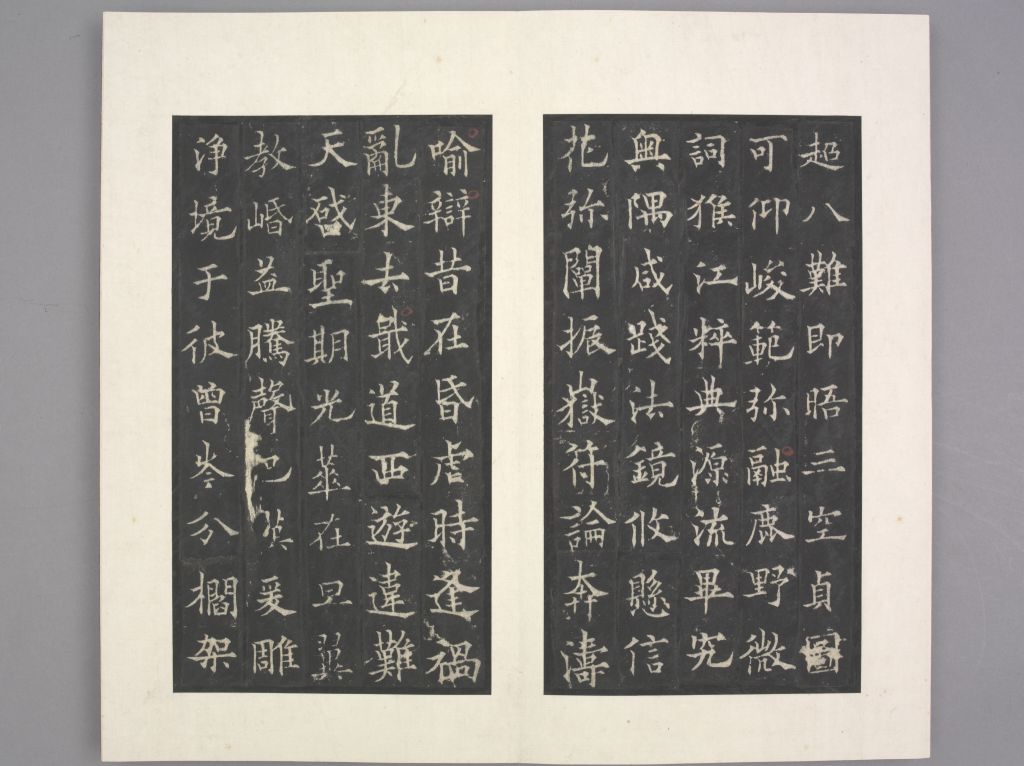 超八難即晤三空貞圖
可仰峻範弥融鹿野微
詞猴江粹典源流畢究
奥隅咸踐法鏡攸懸信
花弥闡振嶽符論奔濤
喻辯昔在昏虐時逢禍
亂東去戢道西遊違難
天啓聖期光華在旦翼
教緡益騰聲已爰雕
淨境于彼曾岑分櫩架